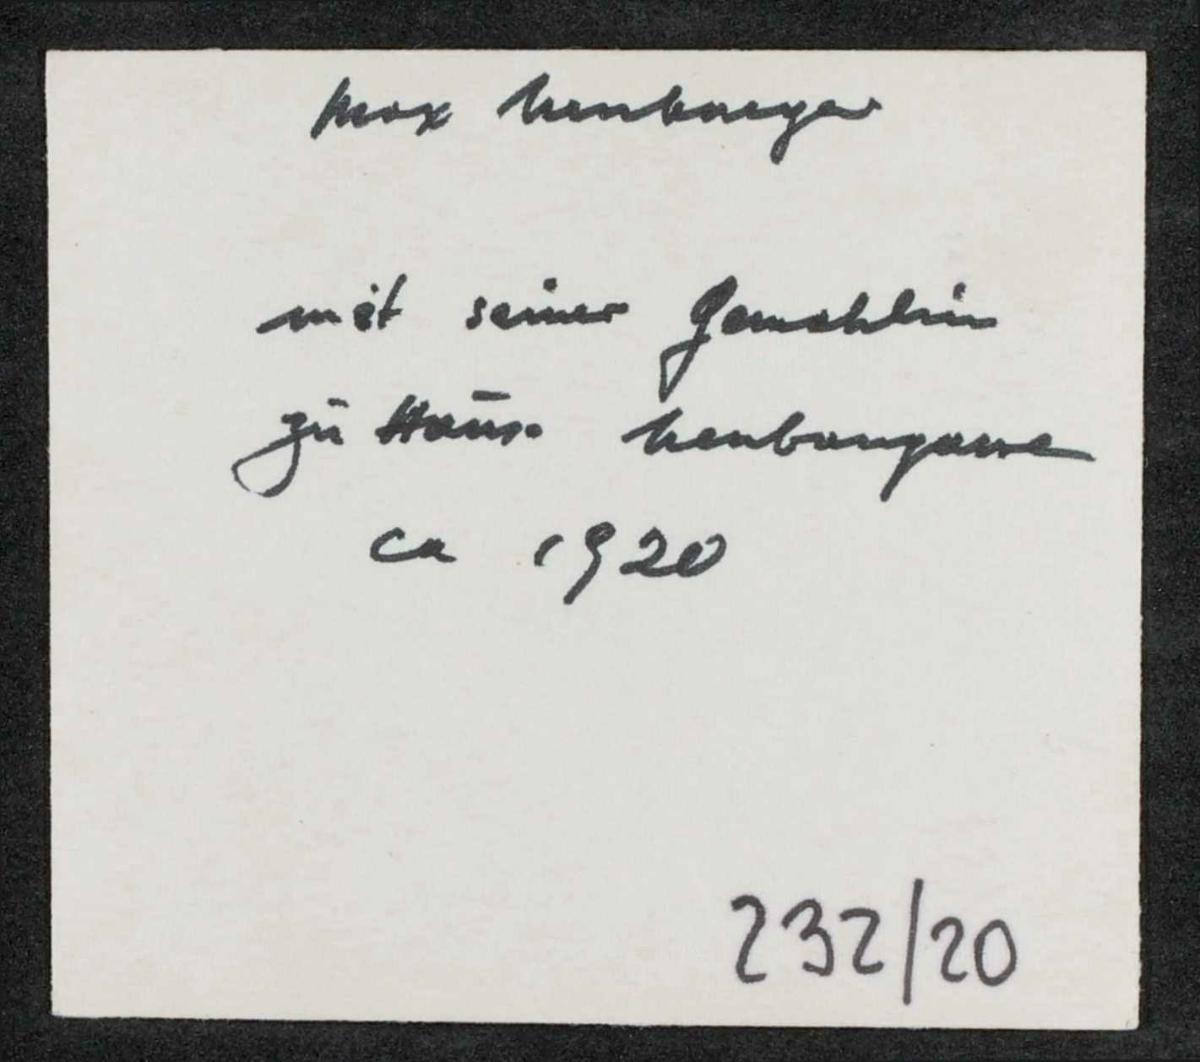 Max Neuburger
mit seiner Gemahlin
zu Hause Neubaugasse
ca 1920
232/20